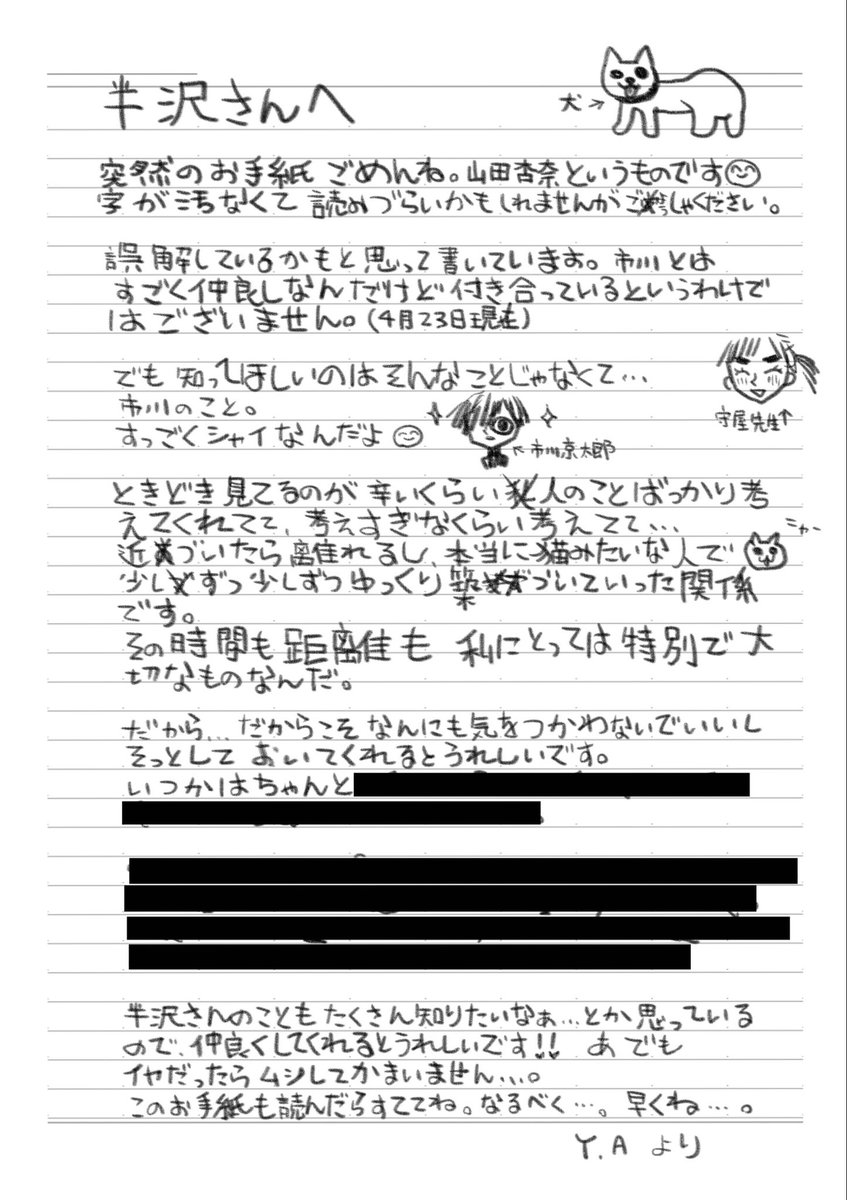 半沢さんへ
犬→
突然のお手紙ごめんね。山田杏奈というものです
字が汚なくて読みづらいかもしれませんがご容しゃください。
誤解しているかもと思って書いています。市川とは
すごく仲良しなんだけど付き合っているというわけで
はございません。(4月23日現在)
でも知ってほしいのはそんなことじゃなくて…
守屋先生↑
市川のこと。
すっごくシャイなんだよ
←市川京太郎
ときどき見てるのが辛いくらい人のことばっかり考
えてくれてて、考えすぎなくらい考えてて…
ニャー
近づいたら離れるし、本当に猫みたいな人で
少しずつ少しずつゆっくり築いていった関係
です。
その時間も距離も私にとっては特別で大
切なものなんだ。
だから…だからこそなんにも気をつかわないでいいし
そっとしておいてくれるとうれしいです。
いつかはちゃんと
半沢さんのこともたくさん知りたいなぁ…とか思っている
ので、仲良くしてくれるとうれしいです!! あ でも
イヤだったらムシしてかまいません…。
このお手紙も読んだらすててね。なるべく…。早くね…。
Y.Aより